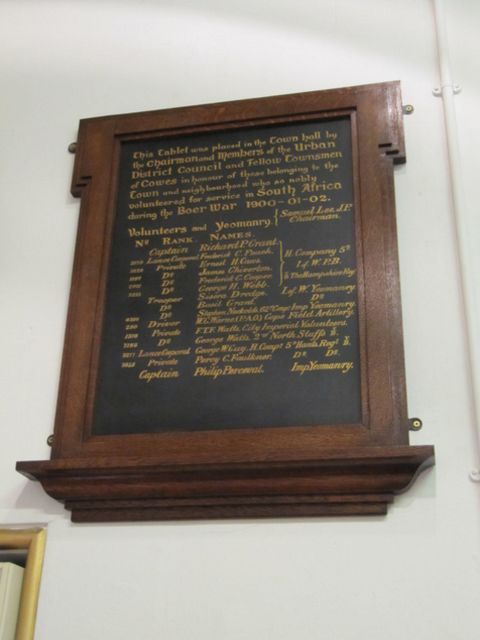 This Tablet was placed in the Town hall by
the Chairman and Members of the Urban
District Council and Fellow Townsmen
of Cowes in honour of those belonging to the
Town and neighbourhood who so nobly
volunteered for service in South Africa
during the Boer War 1900-01-02.
Volunteers and Yeomanry. Samuel Lee, J.P. Chairman.
No RANK. NAMES.
Captain Richard P. Grant.
Lance Corporal Frederick C. H. Company 5th
Private Ernest H. I. of W. P. B.
Do James Chiverton.
Do Frederick C. Cooper. The Hampshire Regt
Do George H. Webb.
Do Dredge. I. of W. Yeomanry
Trooper Basil Grant. Do
Do Stephen Imp Yeomanry.
Do Cape Field Artillery.
Driver F.T.F. Watts, City Imperial Volunteers.
Private George Watts, 2nd North Staffs
Lance Corporal George W. H. Compy 5th Hants Regt
Private Percy C. Faulkner. Do Do
Captain Philip Perceval. Imp Yeomanry.